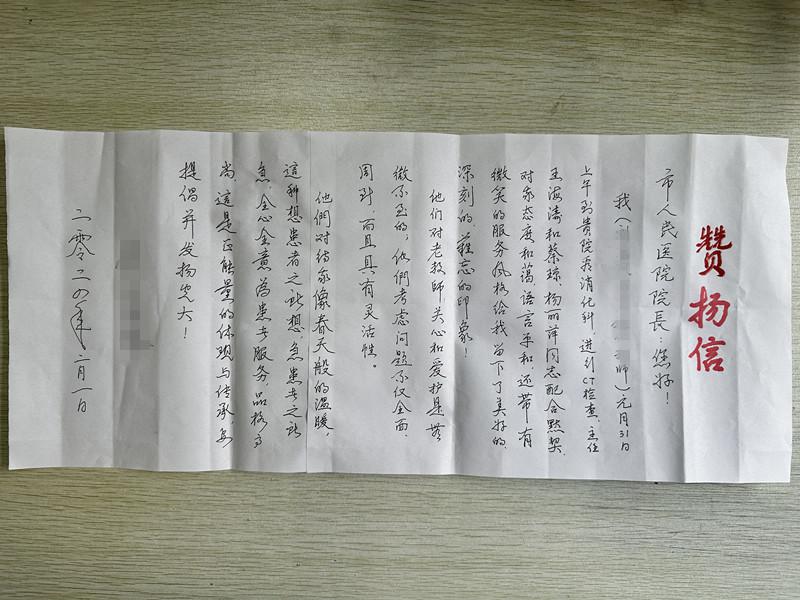 赞扬信
市人民医院院長：您好！
我（ 師）元月31日
上午到贵院看消化科，进行CT检查，主任
王海涛和蔡琼、杨丽萍同志配合默契，
对象态度和蔼，语言柔和，还带有
微笑的服务风格给我留下了美好的、
深刻的难忘的印象！
他们对老教師关心和爱护是無
微不至的，他們考虑问题不仅全面、
周到，而且具有灵活性。
他們对待象像春天般的温暖，
这种想患者之所想，急患者之所
急，全心全意為患者服务，品格高
尚，这是正能量的体现与传承，要
提倡并发扬光大！
二零二四年二月一日